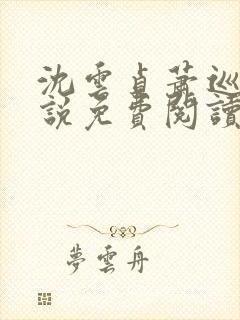 沈雲貞蕭巡
說免費閱讀
夢雲舟